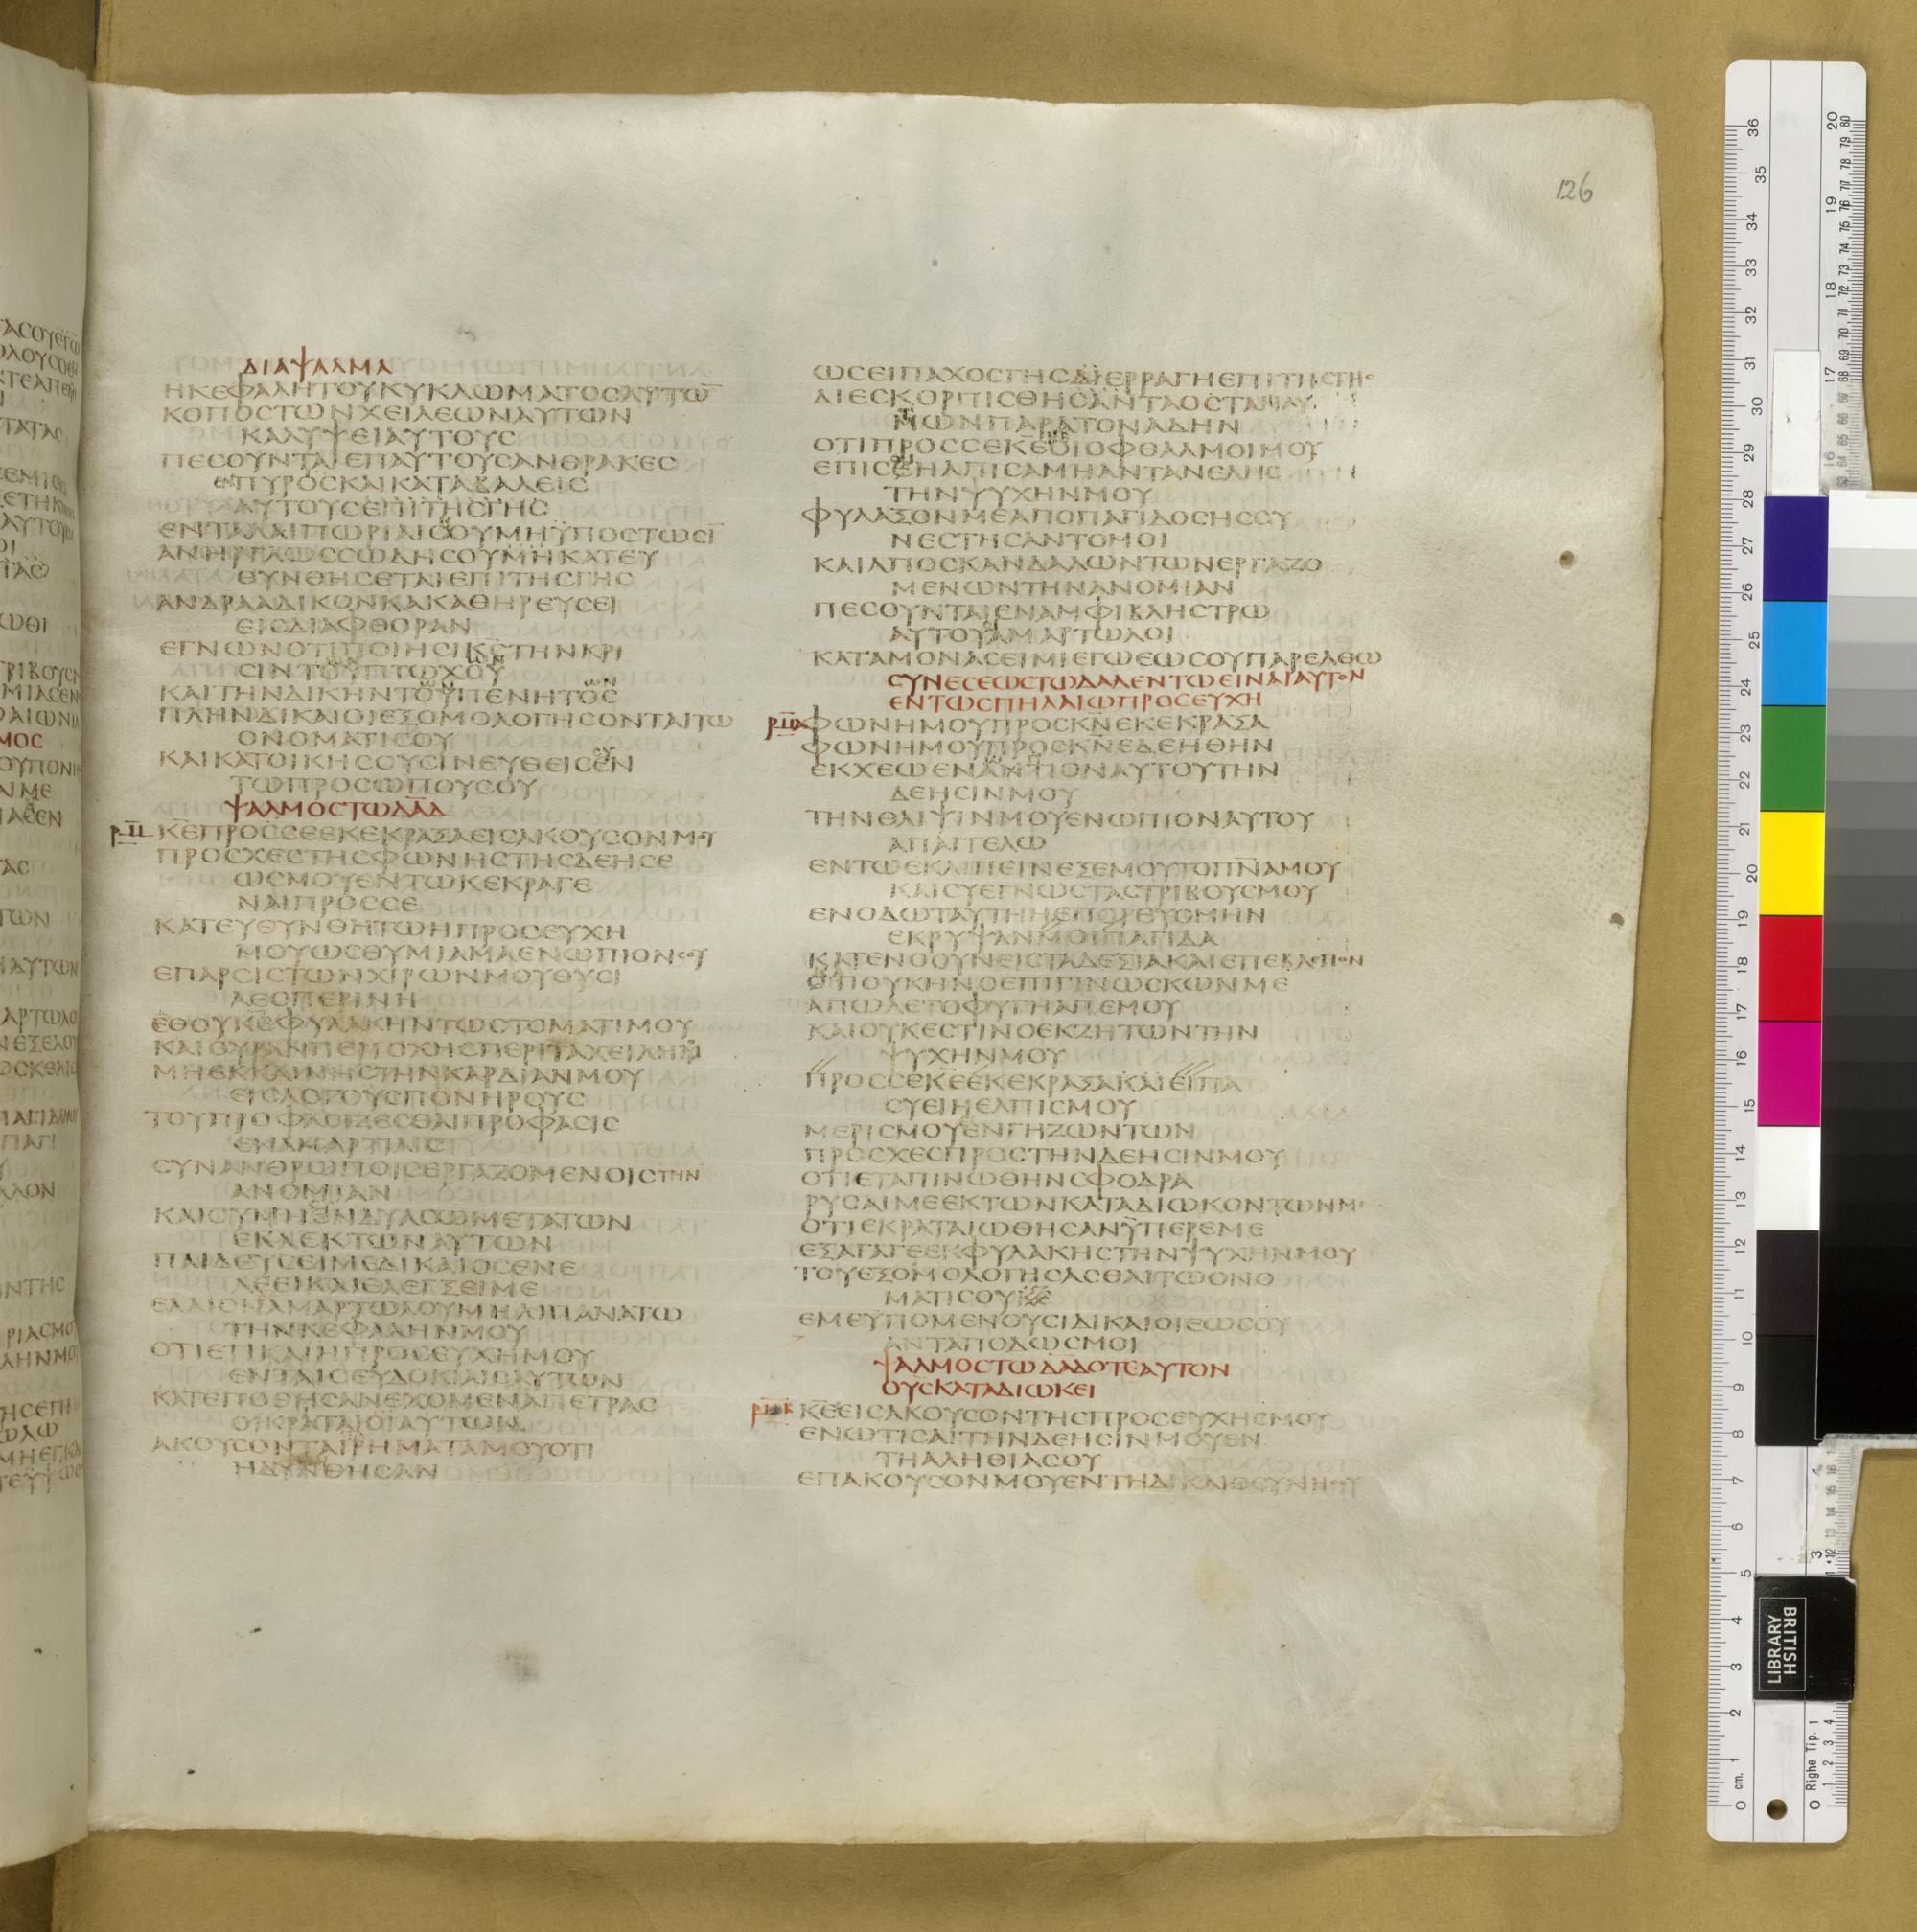 126
ΔΙΑΨΑΛΜΑ
ΗΚΕΦΑΛΗΤΟΥΚΥΚΛΩΜΑΤΟΣΑΥΤΩ̅
ΚΟΠΟΣΤΩΝΧΕΙΛΕΩΝΑΥΤΩΝ
ΚΑΛΥΨΕΙΑΥΤΟΥΣ
ΠΕΣΟΥΝΤΑΙΕΠΑΥΤΟΥΣΑΝΘΡΑΚΕΣ
ΕΝΠΥΡΟΣΚΑΙΚΑΤΑΒΑΛΕΙΣ
ΑΥΤΟΥΣΕΠΙΤΗΣΓΗΣ
ΕΝΤΑΛΑΙΠΩΡΙΑΙΣΟΥΜΗΫΠΟΣΤΩΣΙ̅
ΑΝΗΡΓΛΩΣΣΩΔΗΣΟΥΜΗΚΑΤΕΥ
ΘΥΝΘΗΣΕΤΑΙΕΠΙΤΗΣΓΗΣ
ΑΝΔΡΑΑΔΙΚΟΝΚΑΚΑΘΗΡΕΥΣΕΙ
ΕΙΣΔΙΑΦΘΟΡΑΝ
ΕΓΝΩΝΟΤΙΠΟΙΗΣΙΚ̅Σ̅ΤΗΝΚΡΙ
ΣΙΝΤΟΥΠΤΩΧΟΥ
ΚΑΙΤΗΝΔΙΚΗΝΤΟΥΠΕΝΗΤΟΣ
ΠΛΗΝΔΙΚΑΙΟΙΕΞΟΜΟΛΟΓΗΣΟΝΤΑΙΤΩ
ΟΝΟΜΑΤΙΣΟΥ
ΚΑΙΚΑΤΟΙΚΗΣΟΥΣΙΝΕΥΘΕΙΣΕΝ
ΤΩΠΡΟΣΩΠΟΥΣΟΥ
ΨΑΛΜΟΣΤΩΔΑ̅Δ̅
ΡΜ
Κ̅Ε̅ΠΡΟΣΣΕΕΚΕΚΡΑΞΑΕΙΣΑΚΟΥΣΟΝΜΟΥ
ΠΡΟΣΧΕΣΤΗΣΦΩΝΗΣΤΗΣΔΕΗΣΕ
ΩΣΜΟΥΕΝΤΩΚΕΚΡΑΓΕ
ΝΑΙΠΡΟΣΣΕ
ΚΑΤΕΥΘΥΝΘΗΤΩΗΠΡΟΣΕΥΧΗ
ΜΟΥΩΣΘΥΜΙΑΜΑΕΝΩΠΙΟΝΣΟΥ
ΕΠΑΡΣΙΣΤΩΝΧΙΡΩΝΜΟΥΘΥΣΙ
ΑΕΣΠΕΡΙΝΗ
ΕΘΟΥΚΕΦΥΛΑΚΗΝΤΩΣΤΟΜΑΤΙΜΟΥ
ΚΑΙΘΥΡΑΝΠΕΡΙΟΧΗΣΠΕΡΙΤΑΧΕΙΛΗΜ
ΜΗΕΚΚΛΙΝΗΣΤΗΝΚΑΡΔΙΑΝΜΟΥ
ΕΙΣΛΟΓΟΥΣΠΟΝΗΡΟΥΣ
ΤΟΥΠΡΟΦΑΣΙΖΕΣΘΑΙΠΡΟΦΑΣΙΣ
ΕΝΑΜΑΡΤΙΑΙΣ
ΣΥΝΑΝΘΡΩΠΟΙΣΕΡΓΑΖΟΜΕΝΟΙΣΤΗΝ
ΑΝΟΜΙΑΝ
ΚΑΙΟΥΜΗΣΥΝΔΥΑΣΩΜΕΤΑΤΩΝ
ΕΚΛΕΚΤΩΝΑΥΤΩΝ
ΠΑΙΔΕΥΣΕΙΜΕΔΙΚΑΙΟΣΕΝΕ
ΛΕΕΙΚΑΙΕΛΕΓΞΕΙΜΕ
ΕΛΑΙΟΝΑΜΑΡΤΩΛΟΥΜΗΛΙΠΑΝΑΤΩ
ΤΗΝΚΕΦΑΛΗΝΜΟΥ
ΟΤΙΕΤΙΚΑΙΗΠΡΟΣΕΥΧΗΜΟΥ
ΕΝΤΑΙΣΕΥΔΟΚΙΑΙΣΑΥΤΩΝ
ΚΑΤΕΠΟΘΗΣΑΝΕΧΟΜΕΝΑΠΕΤΡΑΣ
ΟΙΚΡΑΤΑΙΟΙΑΥΤΩΝ
ΑΚΟΥΣΟΝΤΑΙΡΗΜΑΤΑΜΟΥΟΤΙ
ΗΔΥΝΘΗΣΑΝ
ΩΣΕΙΠΑΧΟΣΓΗΣΔΙΕΡΡΑΓΗΕΠΙΤΗΣΓΗΣ
ΔΙΕΣΚΟΡΠΙΣΘΗΣΑΝΤΑΟΣΤΑ
ΜΩΝΠΑΡΑΤΟΝΑΔΗΝ
ΟΤΙΠΡΟΣΣΕΚ̅Ε̅ΟΙΟΦΘΑΛΜΟΙΜΟΥ
ΕΠΙΣΕΗΛΠΙΣΑΜΗΑΝΤΑΝΕΛΗΣ
ΤΗΝΨΥΧΗΝΜΟΥ
ΦΥΛΑΞΟΝΜΕΑΠΟΠΑΓΙΔΟΣΗΣΣΥ
ΝΕΣΤΗΣΑΝΤΟΜΟΙ
ΚΑΙΑΠΟΣΚΑΝΔΑΛΩΝΤΩΝΕΡΓΑΖΟ
ΜΕΝΩΝΤΗΝΑΝΟΜΙΑΝ
ΠΕΣΟΥΝΤΑΙΕΝΑΜΦΙΒΛΗΣΤΡΩ
ΑΥΤΟΥΑΜΑΡΤΩΛΟΙ
ΚΑΤΑΜΟΝΑΣΕΙΜΙΕΓΩΕΩΣΟΥΠΑΡΕΛΘΩ
ΣΥΝΕΣΕΩΣΤΩΔΑΔΕΝΤΩΕΙΝΑΙΑΥΤΟΝ
ΕΝΤΩΣΠΗΛΑΙΩΠΡΟΣΕΥΧΗ
ΡΜΑ
ΦΩΝΗΜΟΥΠΡΟΣΚ̅Ν̅ΕΚΕΚΡΑΞΑ
ΦΩΝΗΜΟΥΠΡΟΣΚ̅Ν̅ΕΔΕΗΘΗΝ
ΕΚΧΕΩΕΝΑΝΤΙΟΝΑΥΤΟΥΤΗΝ
ΔΕΗΣΙΝΜΟΥ
ΤΗΝΘΛΙΨΙΝΜΟΥΕΝΩΠΙΟΝΑΥΤΟΥ
ΑΠΑΓΓΕΛΩ
ΕΝΤΩΕΚΛΙΠΕΙΝΕΞΕΜΟΥΤΟΠ̅Ν̅ΑΜΟΥ
ΚΑΙΣΥΕΓΝΩΣΤΑΣΤΡΙΒΟΥΣΜΟΥ
ΕΝΟΔΩΤΑΥΤΗΗΕΠΟΡΕΥΟΜΗΝ
ΕΚΡΥΨΑΝΜΟΙΠΑΓΙΔΑ
ΚΑΤΕΝΟΟΥΝΕΙΣΤΑΔΕΞΙΑΚΑΙΕΠΕΒΛΕΠΟΝ
ΟΤΙΟΥΚΗΝΟΕΠΙΓΙΝΩΣΚΩΝΜΕ
ΑΠΩΛΕΤΟΦΥΓΗΑΠΕΜΟΥ
ΚΑΙΟΥΚΕΣΤΙΝΟΕΚΖΗΤΩΝΤΗΝ
ΨΥΧΗΝΜΟΥ
ΠΡΟΣΣΕΚ̅Ε̅ΕΚΕΚΡΑΞΑΚΑΙΕΙΠΑ
ΣΥΕΙΗΕΛΠΙΣΜΟΥ
ΜΕΡΙΣΜΟΥΕΝΓΗΖΩΝΤΩΝ
ΠΡΟΣΧΕΣΠΡΟΣΤΗΝΔΕΗΣΙΝΜΟΥ
ΟΤΙΕΤΑΠΙΝΩΘΗΝΣΦΟΔΡΑ
ΡΥΣΑΙΜΕΕΚΤΩΝΚΑΤΑΔΙΩΚΟΝΤΩΝΜΕ
ΟΤΙΕΚΡΑΤΑΙΩΘΗΣΑΝΫΠΕΡΕΜΕ
ΕΞΑΓΑΓΕΕΚΦΥΛΑΚΗΣΤΗΝΨΥΧΗΝΜΟΥ
ΤΟΥΕΞΟΜΟΛΟΓΗΣΑΣΘΑΙΤΩΟΝΟ
ΜΑΤΙΣΟΥ
ΕΜΕΫΠΟΜΕΝΟΥΣΙΔΙΚΑΙΟΙΕΩΣΟΥ
ΑΝΤΑΠΟΔΩΣΜΟΙ
ΨΑΛΜΟΣΤΩΔΑΔΟΤΕΑΥΤΟΝ
ΟΥΣΚΑΤΑΔΙΩΚΕΙ
ΡΜΒ
Κ̅Ε̅ΕΙΣΑΚΟΥΣΟΝΤΗΣΠΡΟΣΕΥΧΗΣΜΟΥ
ΕΝΩΤΙΣΑΙΤΗΝΔΕΗΣΙΝΜΟΥΕΝ
ΤΗΑΛΗΘΙΑΣΟΥ
ΕΠΑΚΟΥΣΟΝΜΟΥΕΝΤΗΔΙΚΑΙΟΣΥΝΗΣΟΥ